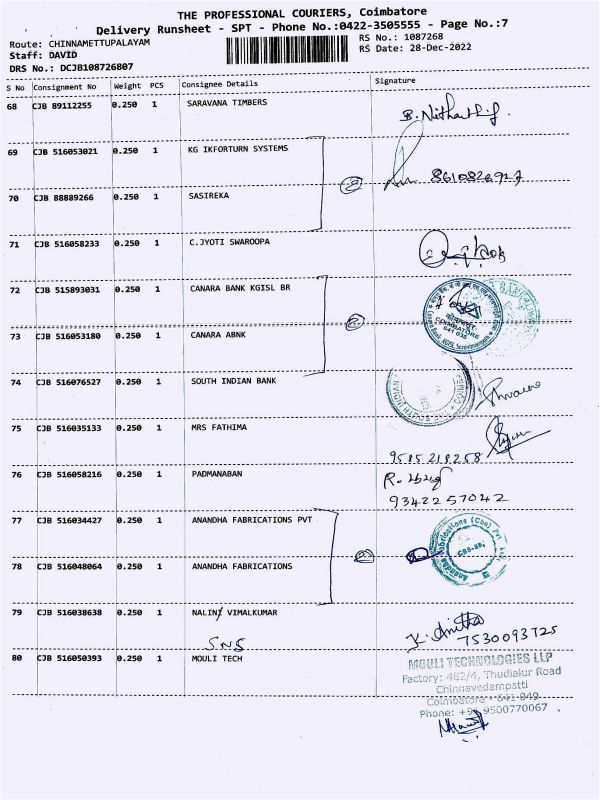 THE PROFESSIONAL COURIERS, Coimbatore
Delivery Runsheet - SPT - Phone No.:0422-3505555 - Page No.:7
Route: CHINNAMETTUPALAYAM
RS No.: 1087268
Staff: DAVID
RS Date: 28-Dec-2022
DRS No.: DCJB108726807
S No Consignment No Weight PCS Consignee Details Signature
68 CJB 89112255 0.250 1 SARAVANA TIMBERS
69 CJB 516053021 0.250 1 KG IKFORTURN SYSTEMS
8610826927
70 CJB 88889266 0.250 1 SASIREKA
71 CJB 516058233 0.250 1 C.JYOTI SWAROOPA
72 CJB 515893031 0.250 1 CANARA BANK KGISL BR
COIMBATORE
73 CJB 516053180 0.250 1 CANARA ABNK
74 CJB 516076527 0.250 1 SOUTH INDIAN BANK
75 CJB 516035133 0.250 1 MRS FATHIMA
9585218258
76 CJB 516058216 0.250 1 PADMANABAN
9342257042
77 CJB 516034427 0.250 1 ANANDHA FABRICATIONS PVT
Anandha Fabrications (Cbe) Pvt
78 CJB 516048064 0.250 1 ANANDHA FABRICATIONS
79 CJB 516038638 0.250 1 NALINI VIMALKUMAR
K. Anitha
7530093725
SNS
80 CJB 516050393 0.250 1 MOULI TECH
MOULI TECHNOLOGIES LLP
Factory: 482/4, Thudialur Road
Chinnavedampatti
Coimbatore - 641 049
Phone: +91 9500770067